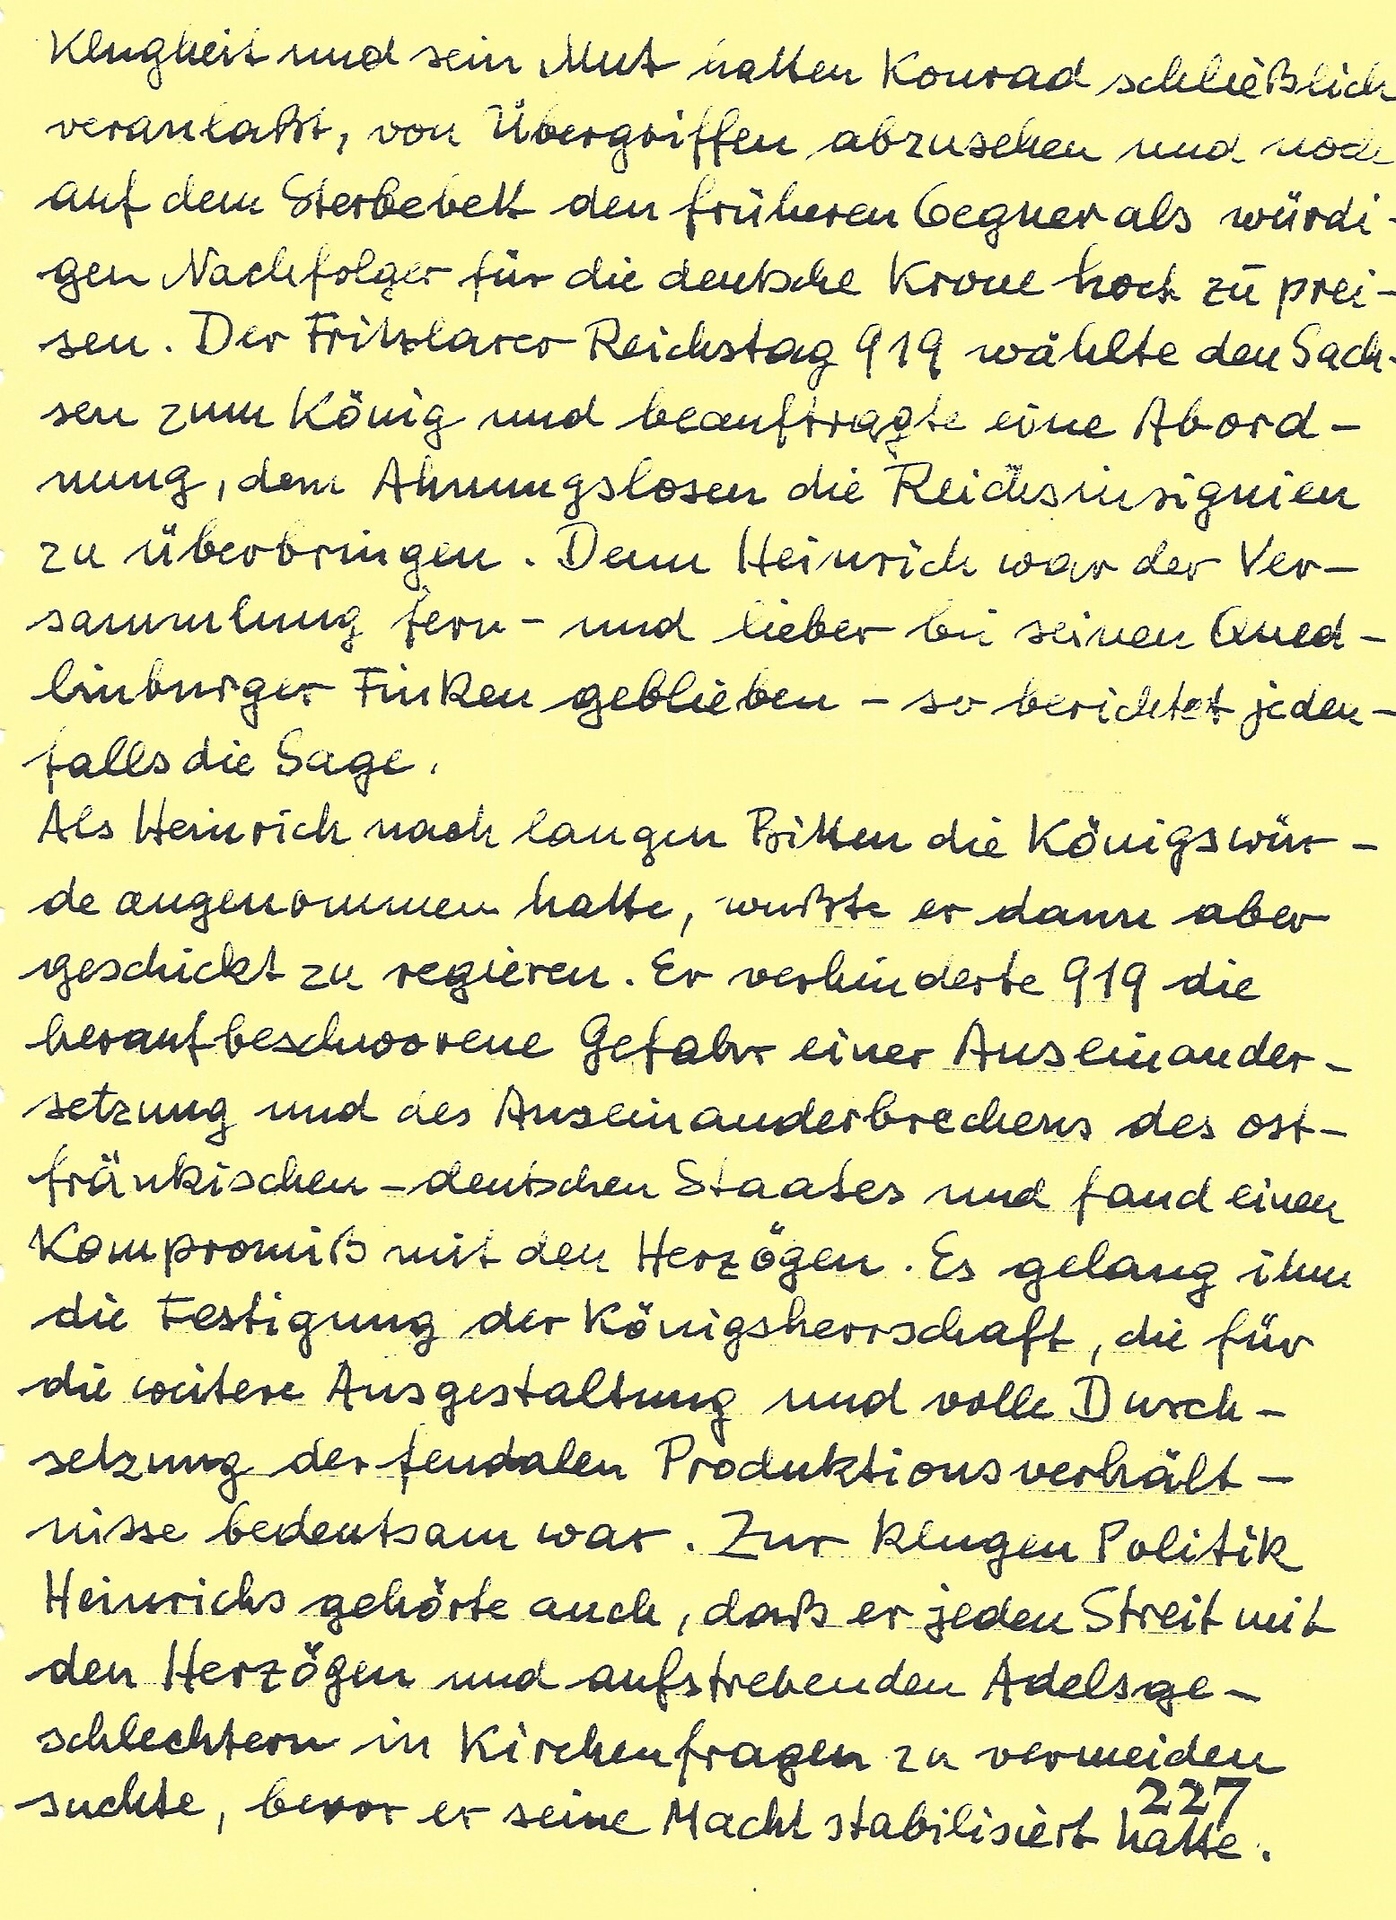 Klugheit und sein Mut hatten Konrad schließlich
veranlaßt, von Übergriffen abzusehen und noch
auf dem Sterbebett den früheren Gegner als würdi-
gen Nachfolger für die deutsche Krone hoch zu prei-
sen. Der Fritzlarer Reichstag 919 wählte den Sach-
sen zum König und beauftragte eine Abord-
nung, dem Ahnungslosen die Reichsinsignien
zu überbringen. Denn Heinrich war der Ver-
sammlung fern- und lieber bei seinen Qued-
linburger Finken geblieben - so berichtet jeden-
falls die Sage.
Als Heinrich nach langen Bitten die Königswür-
de angenommen hatte, wußte er dann aber
geschickt zu regieren. Er verhinderte 919 die
heraufbeschworene Gefahr einer Auseinander-
setzung und des Auseinanderbrechens des ost-
fränkischen-deutschen Staates und fand einen
Kompromiß mit den Herzögen. Es gelang ihm
die Festigung der Königsherrschaft, die für
die weitere Ausgestaltung und volle Durch-
setzung der feudalen Produktionsverhält-
nisse bedeutsam war. Zur klugen Politik
Heinrichs gehörte auch, daß er jeden Streit mit
den Herzögen und aufstrebenden Adelsge-
schlechtern in Kirchenfragen zu vermeiden
suchte, bevor er seine Macht stabilisiert hatte.
227